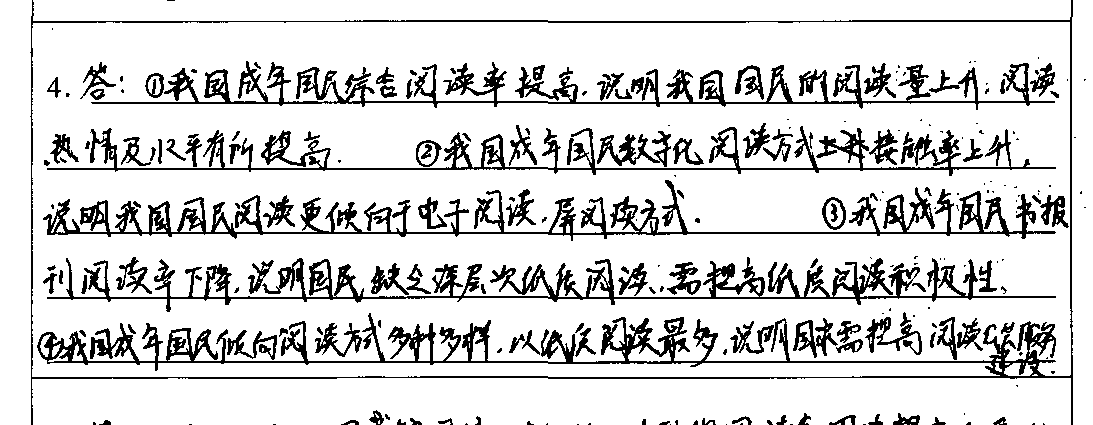 4. 答：①我国成年国民综合阅读率提高，说明我国国民的阅读量上升，阅读
热情及水平有所提高. ②我国成年国民数字化阅读方式接触率上升，
说明我国国民阅读更倾向于电子阅读，屏阅读方式. ③我国成年国民书报
刊阅读率下降，说明国民缺乏深层次纸质阅读，需提高纸质阅读积极性、
④我国成年国民倾向阅读方式多种多样，以纸质阅读最多，说明国家需提高阅读公共服务
建设.